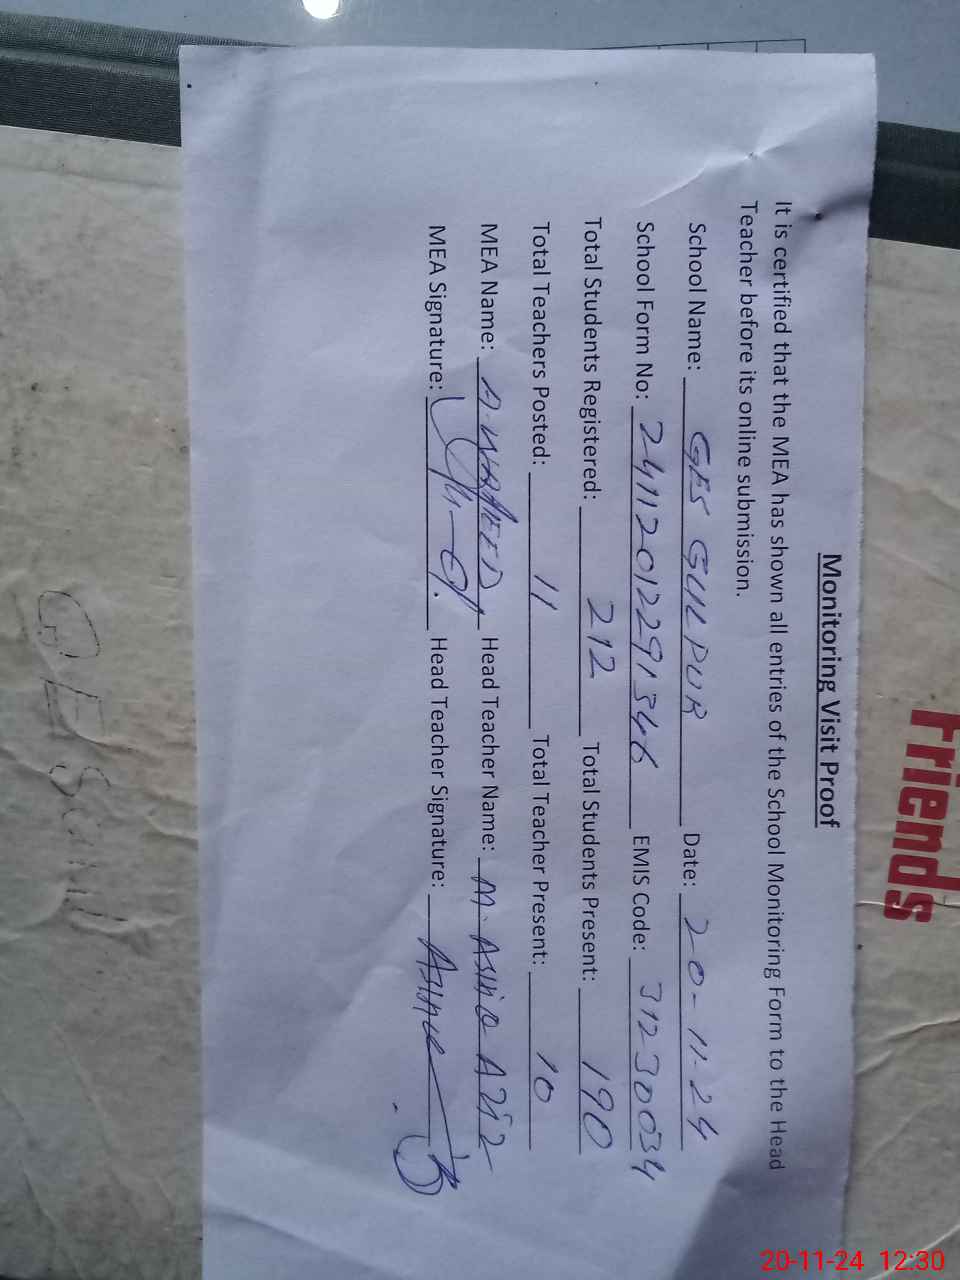 Monitoring Visit Proof
It is certified that the MEA has shown all entries of the School Monitoring Form to the Head
Teacher before its online submission.
School Name: GES GULPUR Date: 20-11-24
School Form No: 24112012291346 EMIS Code: 31230034
Total Students Registered: 212 Total Students Present: 190
Total Teachers Posted: 11 Total Teacher Present: 10
MEA Name: A. WAHEED Head Teacher Name: M. Asim
MEA Signature: Head Teacher Signature:
Friends
20-11-24 12:30